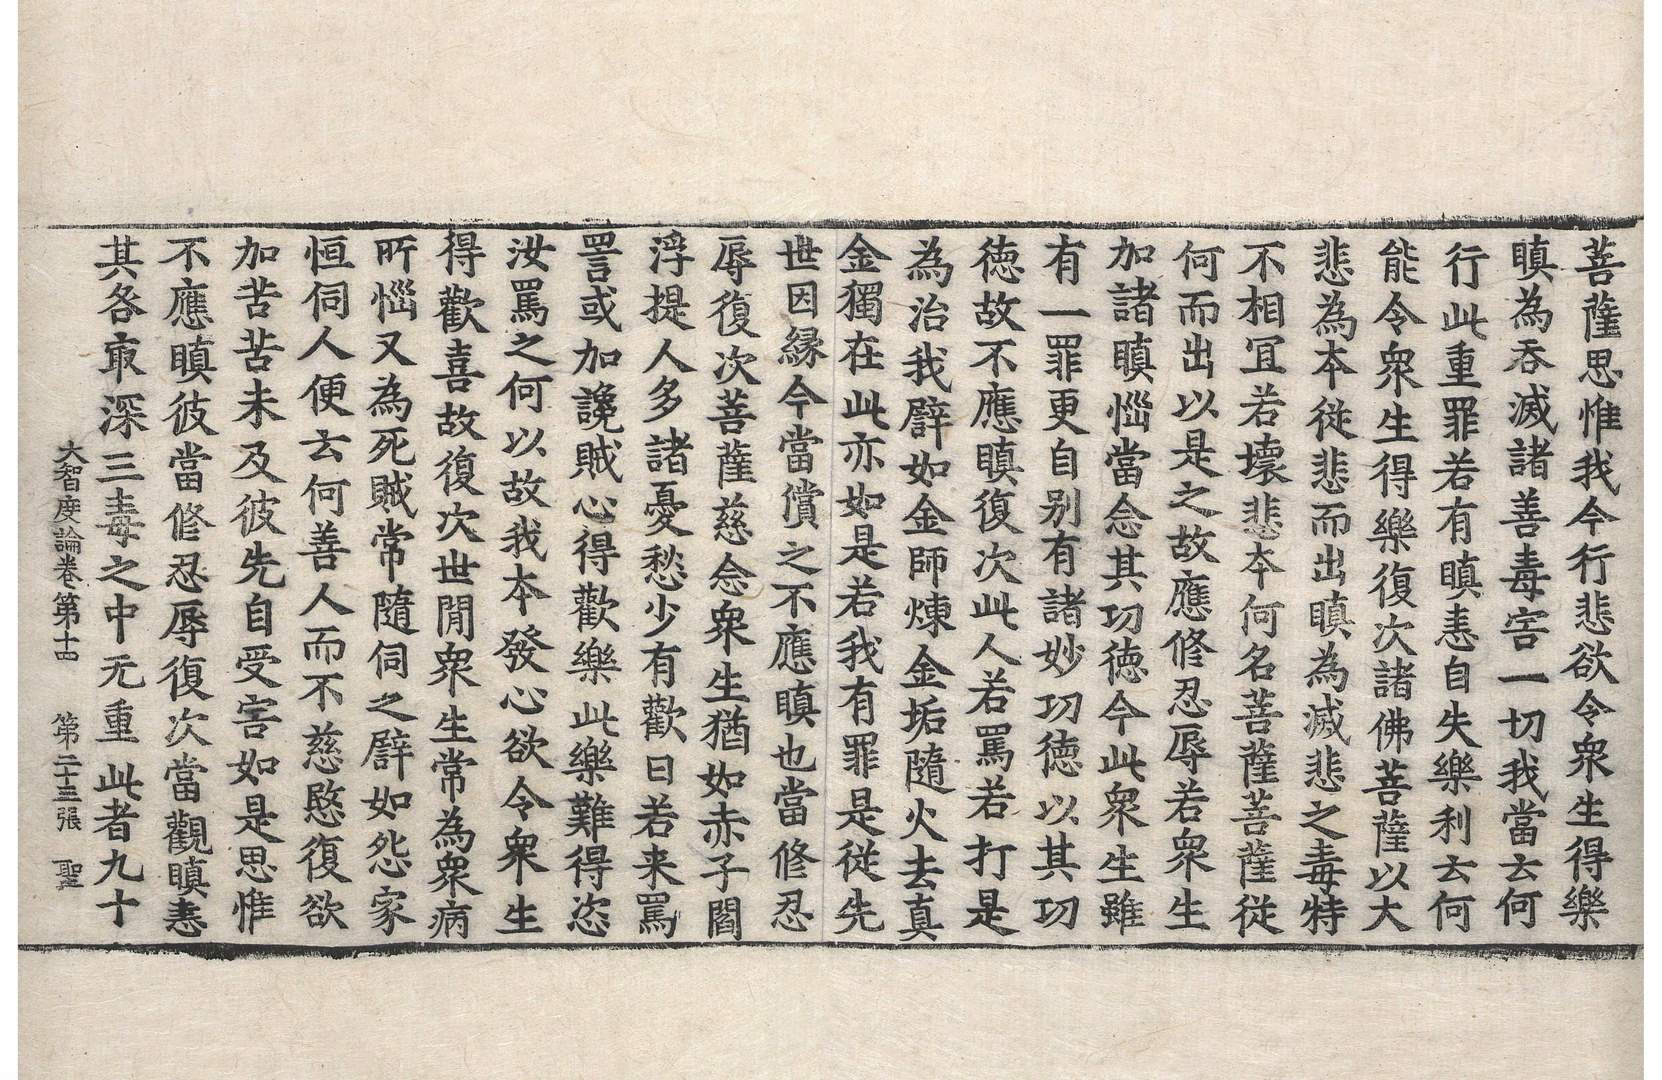 菩薩思惟我今行悲欲令衆生得樂
瞋為吞滅諸善毒害一切我當云何
行此重罪若有瞋恚自失樂利云何
能令衆生得樂復次諸佛菩薩以大
悲為本從悲而出瞋為滅悲之毒特
不相冝若壞悲本何名菩薩菩薩從
何而出以是之故應修忍辱若衆生
加諸瞋惱當念其功徳今此衆生雖
有一罪更自别有諸妙功徳以其功
徳故不應瞋復次此人若罵若打是
為治我譬如金師煉金垢隨火去真
金獨在此亦如是若我有罪是從先
世因緣今當償之不應瞋也當修忍
辱復次菩薩慈念衆生猶如赤子閻
浮提人多諸憂愁少有歡日若来罵
詈或加讒賊心得歡樂此樂難得恣
汝罵之何以故我本發心欲令衆生
得歡喜故復次世閒衆生常為衆病
所惱又為死賊常隨伺之譬如怨家
恒伺人便云何善人而不慈愍復欲
加苦苦未及彼先自受害如是思惟
不應瞋彼當修忍辱復次當觀瞋恚
其咎㝡深三毒之中无重此者九十
大智度論卷第十四 第二十三張 聖